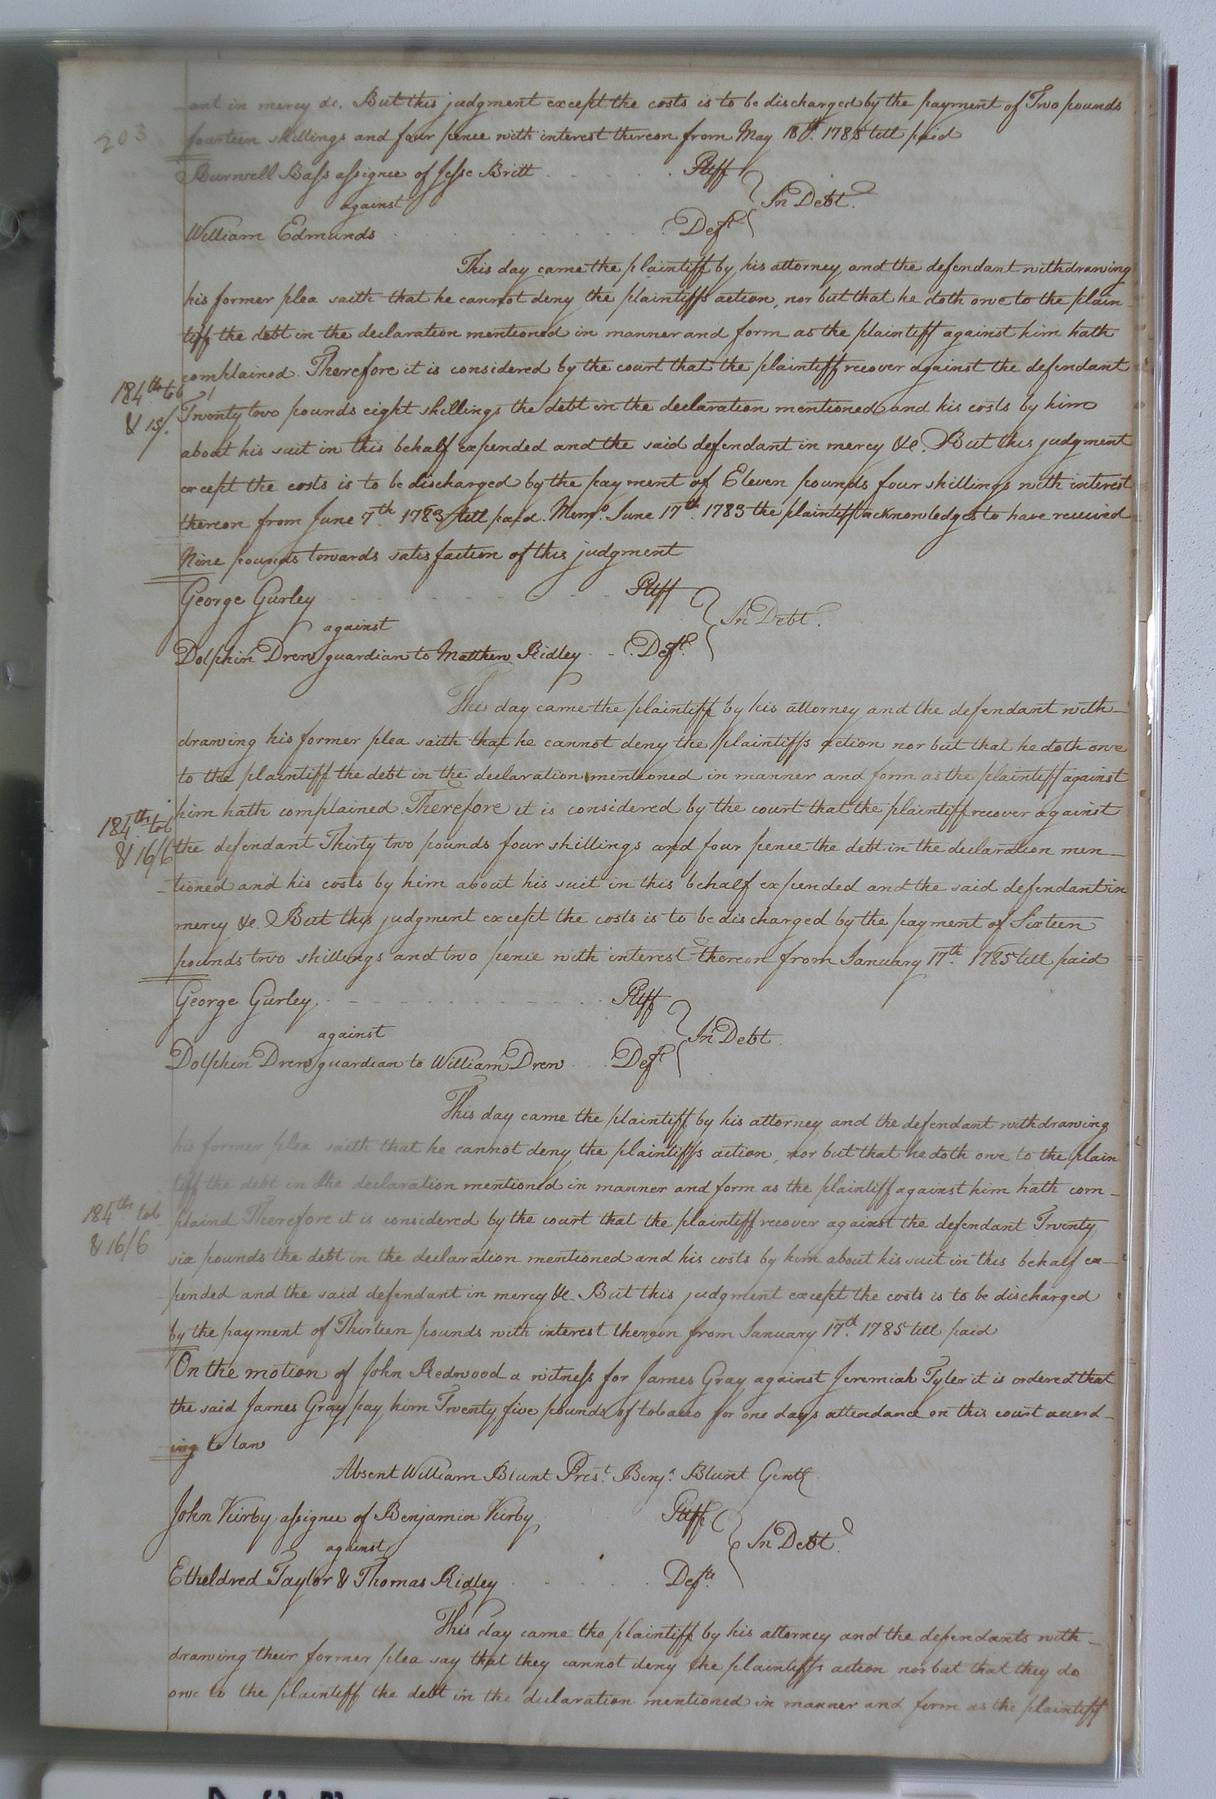 203
ant in mercy &c. But this judgment except the costs is to be discharged by the payment of Two pounds
fourteen shillings and four pence with interest thereon from May 18th. 1785 till paid
Burwell Bass assignee of Jesse Britt Pltff
against
In Debt.
William Edmunds Deft.
This day came the plaintiff by his attorney and the defendant withdrawing
his former plea saith that he cannot deny the plaintiffs action, nor but that he doth owe to the plain
tiff the debt in the declaration mentioned in manner and form as the plaintiff against him hath
complained. Therefore it is considered by the court that the plaintiff recover against the defendant
184th tob
& 15/.
Twenty two pounds eight shillings the debt in the declaration mentioned and his costs by him
about his suit in this behalf expended and the said defendant in mercy &c. But this judgment
except the costs is to be discharged by the payment of Eleven pounds four shillings with interest
thereon from June 7th. 1783 till paid. Memo. June 17th. 1783 the plaintiff acknowledges to have received
Nine pounds towards satisfaction of this judgment
George Gurley Pltff
against
In Debt.
Dolphin Drew guardian to Matthew Ridley Deft.
This day came the plaintiff by his attorney and the defendant with-
drawing his former plea saith that he cannot deny the plaintiffs action nor but that he doth owe
to the plaintiff the debt in the declaration mentioned in manner and form as the plaintiff against
him hath complained. Therefore it is considered by the court that the plaintiff recover against
184th. tob
& 16/6
the defendant Thirty two pounds four shillings and four pence the debt in the declaration men-
-tioned and his costs by him about his suit in this behalf expended and the said defendant in
mercy &c. But this judgment except the costs is to be discharged by the payment of Sixteen
pounds two shillings and two pence with interest thereon from January 17th. 1785 till paid
George Gurley. Pltff
against
In Debt.
Dolphin Drew guardian to William Drew Deft
This day came the plaintiff by his attorney and the defendant withdrawing
his former plea saith that he cannot deny the plaintiffs action, nor but that he doth owe to the plain
tiff the debt in the declaration mentioned in manner and form as the plaintiff against him hath com-
184th tob
& 16/6
plaind Therefore it is considered by the court that the plaintiff recover against the defendant Twenty
six pounds the debt in the declaration mentioned and his costs by him about his suit in this behalf ex-
-pended and the said defendant in mercy &c. But this judgment except the costs is to be discharged
by the payment of Thirteen pounds with interest thereon from January 17th. 1785 till paid
On the motion of John Redwood a witness for James Gray against Jeremiah Tyler it is ordered that
the said James Gray pay him Twenty five pounds of tobacco for one days attendance on this court accord-
ing to law
Absent William Blunt Prest. Benja. Blunt Gentl
John Kirby assignee of Benjamin Kirby Pltff.
against
In Debt.
Etheldred Taylor & Thomas Ridley Defts.
This day came the plaintiff by his attorney and the defendants with-
drawing their former plea say that they cannot deny the plaintiffs action nor but that they do
owe to the plaintiff the debt in the declaration mentioned in manner and form as the plaintiff